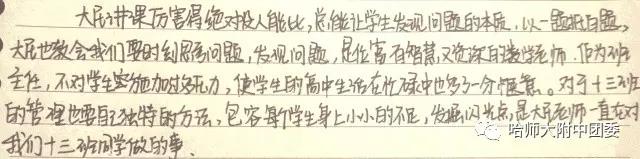 大民讲课厉害得绝对没人能比,总能让学生发现问题的本质,以一题抵百题,
大民也教会我们要时刻思考问题,发现问题,是位富有智慧又资深的数学老师.作为班
主任,不对学生施加过多压力,使学生的高中生活在忙碌中也多了一分惬意。对于十三班
的管理也要自己独特的方法,包容每个学生身上小小的不足,发掘闪光点,是大民老师一直在对
我们十三班同学做的事、
哈师大附中团委